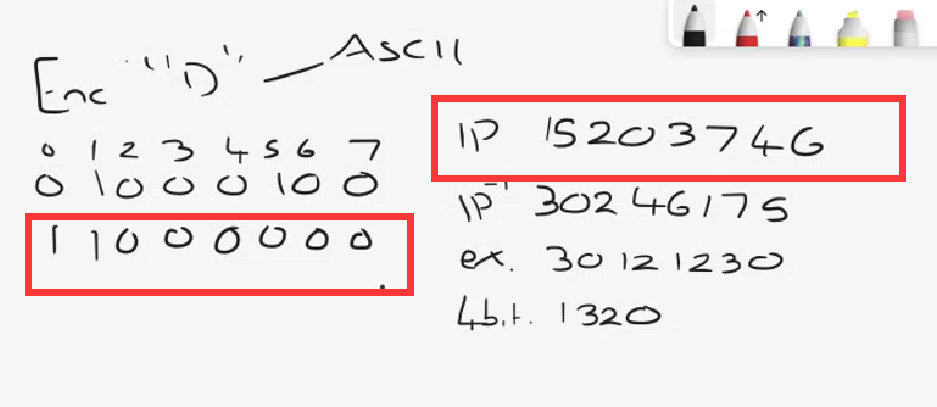 Enc "D" — ASCII
0 1 2 3 4 5 6 7
0 1 0 0 0 1 0 0
1 1 0 0 0 0 0 0
IP 15203746
IP⁻¹ 30246175
ex. 30121230
4bit. 1320